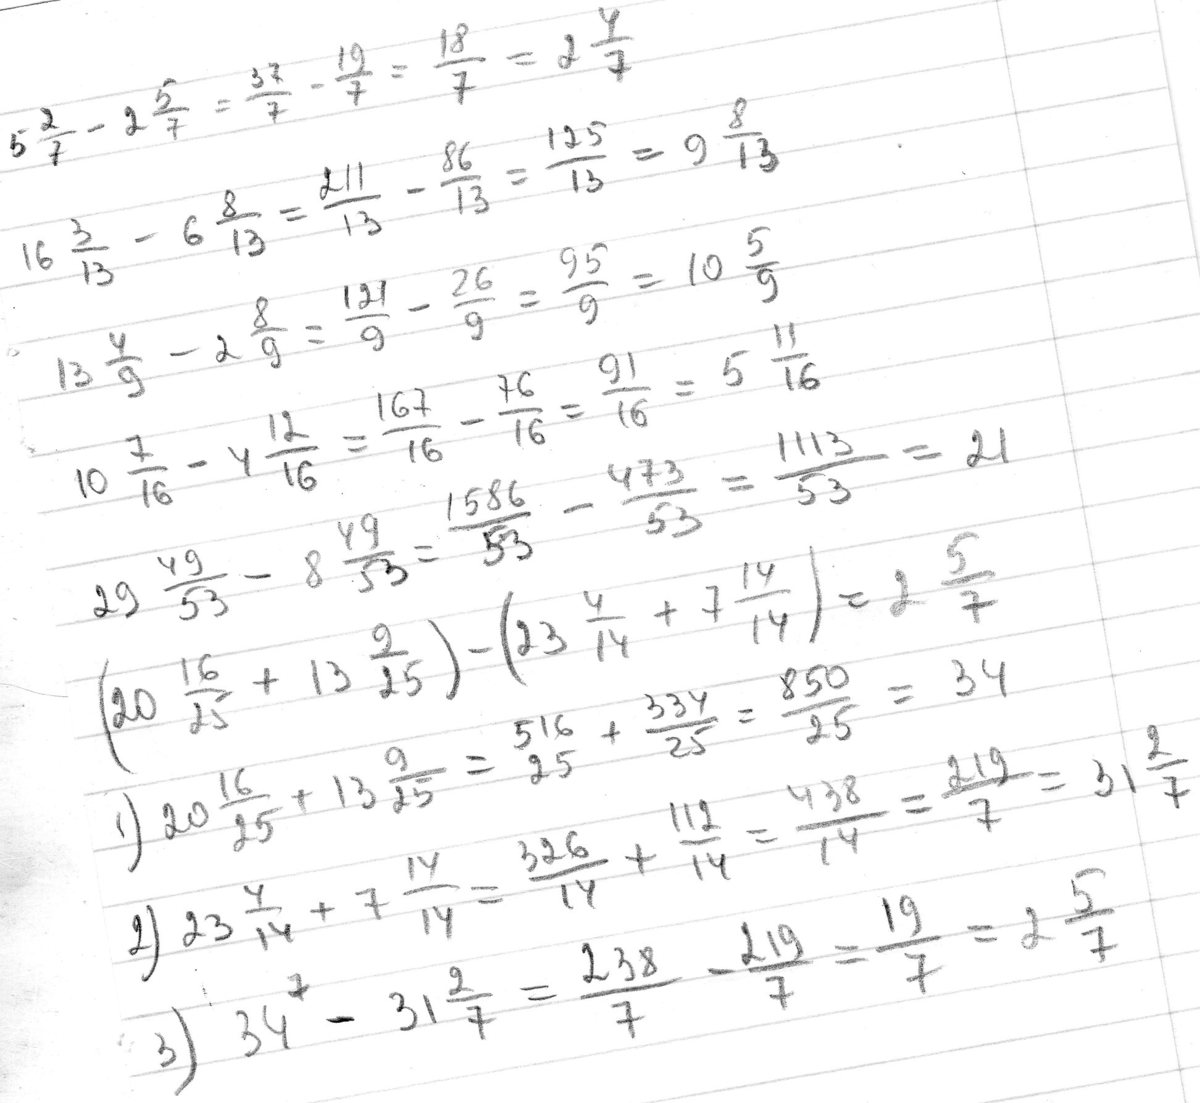 5 2/7 - 2 5/7 = 37/7 - 19/7 = 18/7 = 2 4/7
16 3/13 - 6 8/13 = 211/13 - 86/13 = 125/13 = 9 8/13
13 4/9 - 2 8/9 = 121/9 - 26/9 = 95/9 = 10 5/9
10 7/16 - 4 12/16 = 167/16 - 76/16 = 91/16 = 5 11/16
29 49/53 - 8 49/53 = 1586/53 - 473/53 = 1113/53 = 21
(20 16/25 + 13 9/25) - (23 4/14 + 7 14/14) = 2 5/7
1) 20 16/25 + 13 9/25 = 516/25 + 334/25 = 850/25 = 34
2) 23 4/14 + 7 14/14 = 326/14 + 112/14 = 438/14 = 219/7 = 31 2/7
3) 34^7 - 31 2/7 = 238/7 - 219/7 = 19/7 = 2 5/7